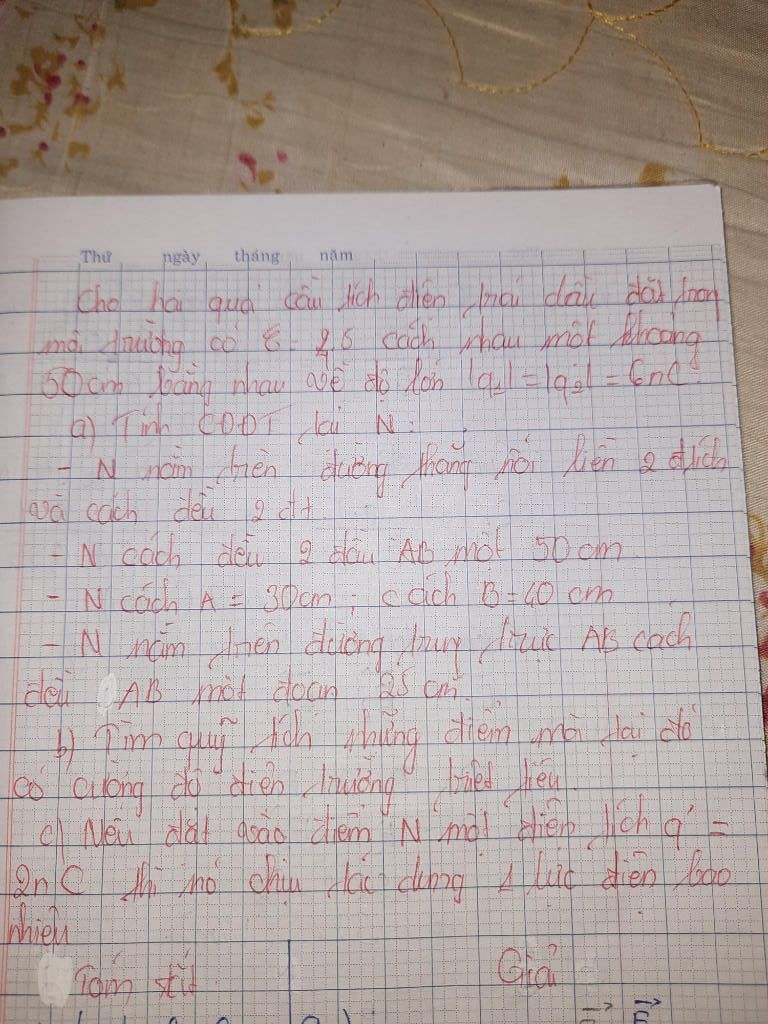 Thứ ngày tháng năm
Cho hai quả cầu tích điện trái dấu đặt trong
môi trường có ε = 4,5 cách nhau một khoảng
50cm bằng nhau về độ lớn |q1| = |q2| = 6nC
a) Tính CĐĐT tại N:
- N nằm trên đường thẳng nối liền 2 đtích
và cách đều 2 đt
- N cách đều 2 đầu AB một 50 cm
- N cách A = 30cm; cách B = 40 cm
- N nằm trên đường trung trực AB cách
đều AB một đoạn 25 cm
b) Tìm quỹ tích những điểm mà tại đó
có cường độ điện trường triệt tiêu
c) Nếu đặt vào điểm N một điện tích q' =
2nC thì nó chịu tác dụng 1 lực điện bao
nhiêu
Tóm tắt Giả